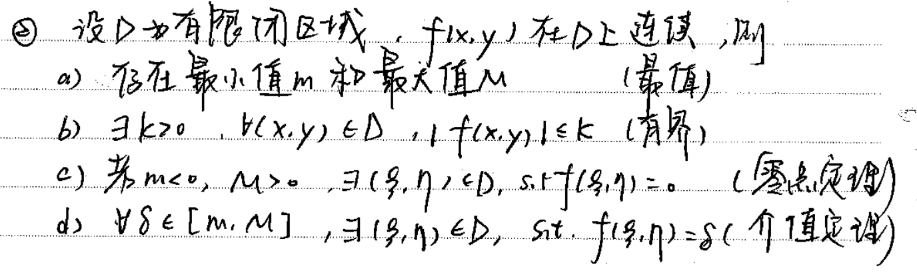 ② 设D为有限闭区域，f(x,y)在D上连续，则
a) 存在最小值m和最大值M （最值）
b) ∃k>0，∀(x,y)∈D，|f(x,y)|≤k （有界）
c) 若m<0，M>0，∃(ξ,η)∈D，s.t f(ξ,η)=0 （零点定理）
d) ∀δ∈[m,M]，∃(ξ,η)∈D，s.t. f(ξ,η)=δ（介值定理）